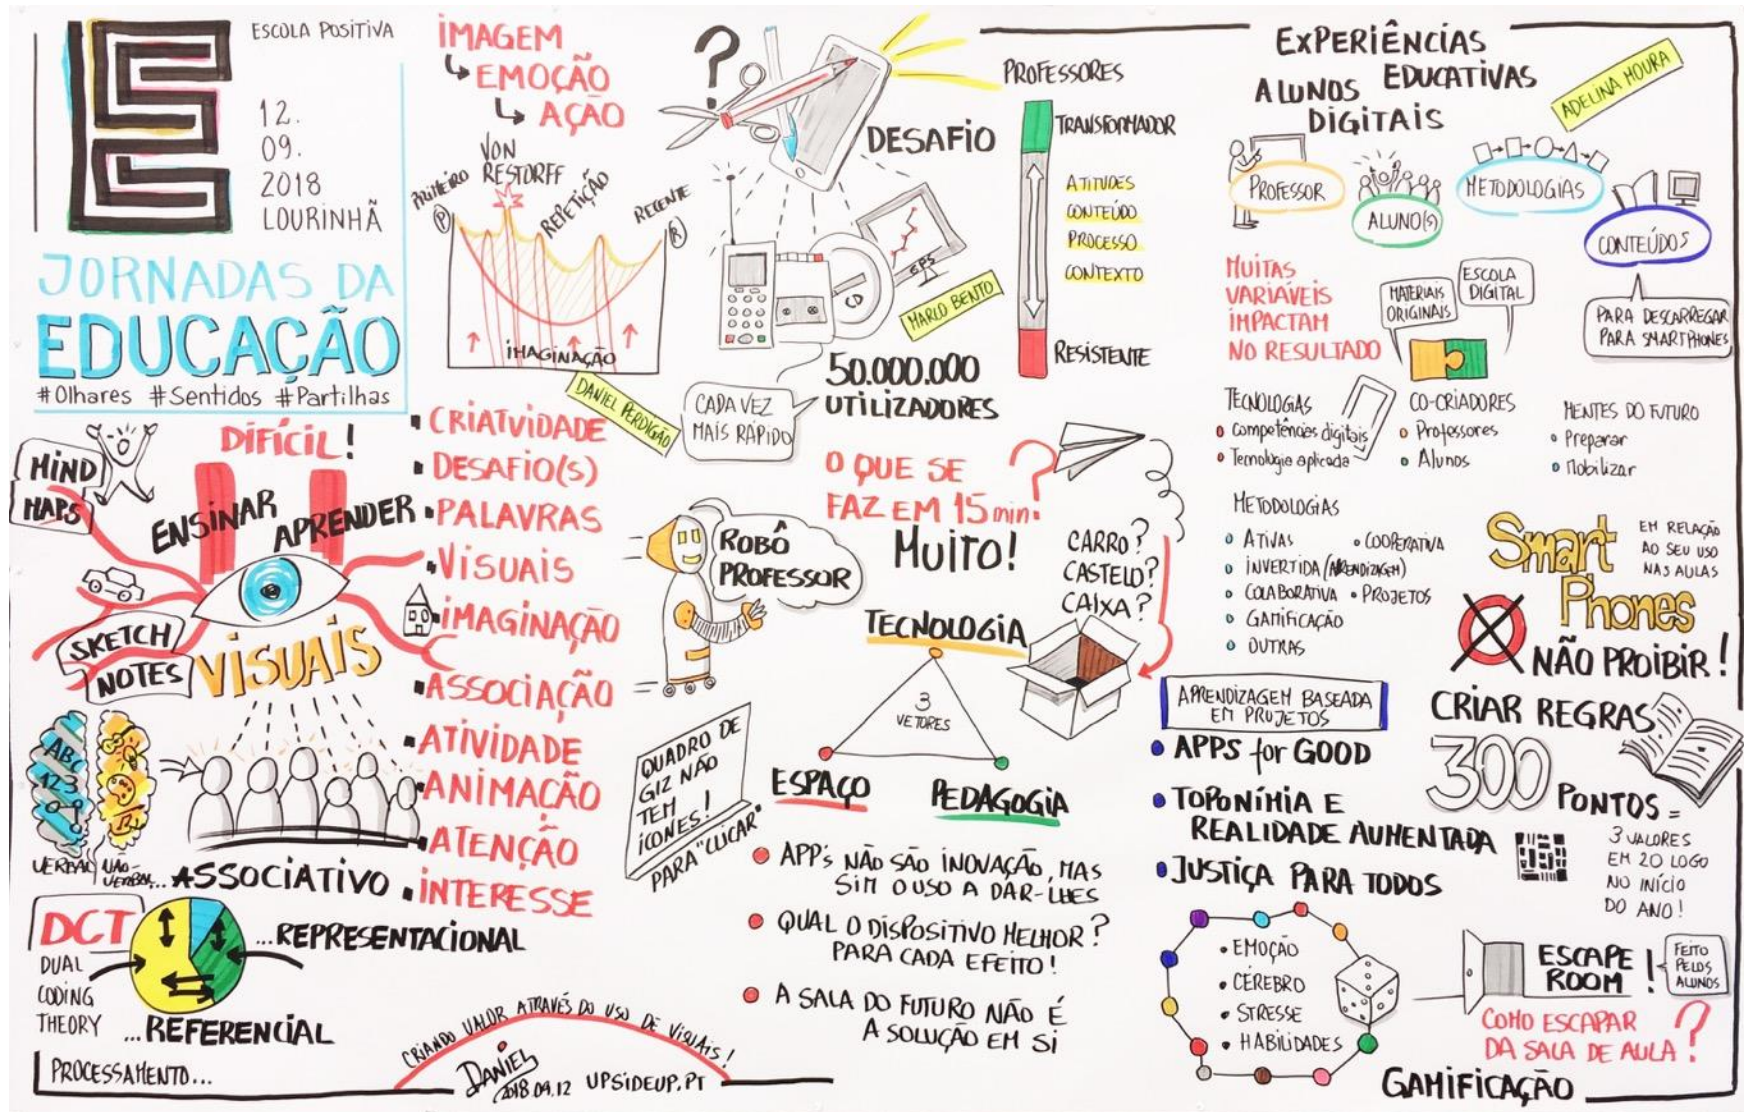 ESCOLA POSITIVA
12.
09.
2018
LOURINHÃ
JORNADAS DA
EDUCAÇÃO
#Olhares #Sentidos #Partilhas
IMAGEM
EMOÇÃO
AÇÃO
VON
RESTORFF
PRIMEIRO
REPETIÇÃO
RECENTE
P
R
IMAGINAÇÃO
DANIEL PERDIGÃO
DIFÍCIL!
MIND
MAPS
ENSINAR
APRENDER
SKETCH
NOTES
VISUAIS
CRIATVIDADE
DESAFIO(S)
PALAVRAS
VISUAIS
IMAGINAÇÃO
ASSOCIAÇÃO
ATIVIDADE
ANIMAÇÃO
ATENÇÃO
INTERESSE
ABC
123
VERBAL
NÃO-
VERBAL
...ASSOCIATIVO
DCT
DUAL
CODING
THEORY
...REPRESENTACIONAL
...REFERENCIAL
PROCESSAMENTO...
CRIANDO VALOR ATRAVÉS DO USO DE VISUAIS!
DANIEL
2018.09.12
UPSIDEUP.PT
?
DESAFIO
CD
GPS
MARCO BENTO
50.000.000
UTILIZADORES
CADA VEZ
MAIS RÁPIDO
PROFESSORES
TRANSFORMADOR
ATITUDES
CONTEÚDO
PROCESSO
CONTEXTO
RESISTENTE
O QUE SE
FAZ EM 15 min?
MUITO!
ROBÔ
PROFESSOR
CARRO?
CASTELO?
CAIXA?
TECNOLOGIA
3
VETORES
ESPAÇO
PEDAGOGIA
QUADRO DE
GIZ NÃO
TEM
ÍCONES!
PARA "CLICAR"
APP's NÃO SÃO INOVAÇÃO, MAS
SIM O USO A DAR-LHES
QUAL O DISPOSITIVO MELHOR?
PARA CADA EFEITO!
A SALA DO FUTURO NÃO É
A SOLUÇÃO EM SI
EXPERIÊNCIAS
EDUCATIVAS
ALUNOS
DIGITAIS
ADELINA MOURA
PROFESSOR
ALUNO(S)
METODOLOGIAS
CONTEÚDOS
PARA DESCARREGAR
PARA SMARTPHONES
MUITAS
VARIÁVEIS
IMPACTAM
NO RESULTADO
MATERIAIS
ORIGINAIS
ESCOLA
DIGITAL
TECNOLOGIAS
Competências digitais
Tecnologia aplicada
CO-CRIADORES
Professores
Alunos
MENTES DO FUTURO
Preparar
Mobilizar
METODOLOGIAS
ATIVAS
COOPERATIVA
INVERTIDA (APRENDIZAGEM)
COLABORATIVA
PROJETOS
GAMIFICAÇÃO
OUTRAS
Smart
Phones
EM RELAÇÃO
AO SEU USO
NAS AULAS
NÃO PROIBIR!
CRIAR REGRAS
APRENDIZAGEM BASEADA
EM PROJETOS
APPS for GOOD
TOPONÍMIA E
REALIDADE AUMENTADA
JUSTIÇA PARA TODOS
300
PONTOS =
3 VALORES
EM 20 LOGO
NO INÍCIO
DO ANO!
EMOÇÃO
CÉREBRO
STRESSE
HABILIDADES
ESCAPE
ROOM!
FEITO
PELOS
ALUNOS
COMO ESCAPAR
DA SALA DE AULA?
GAMIFICAÇÃO